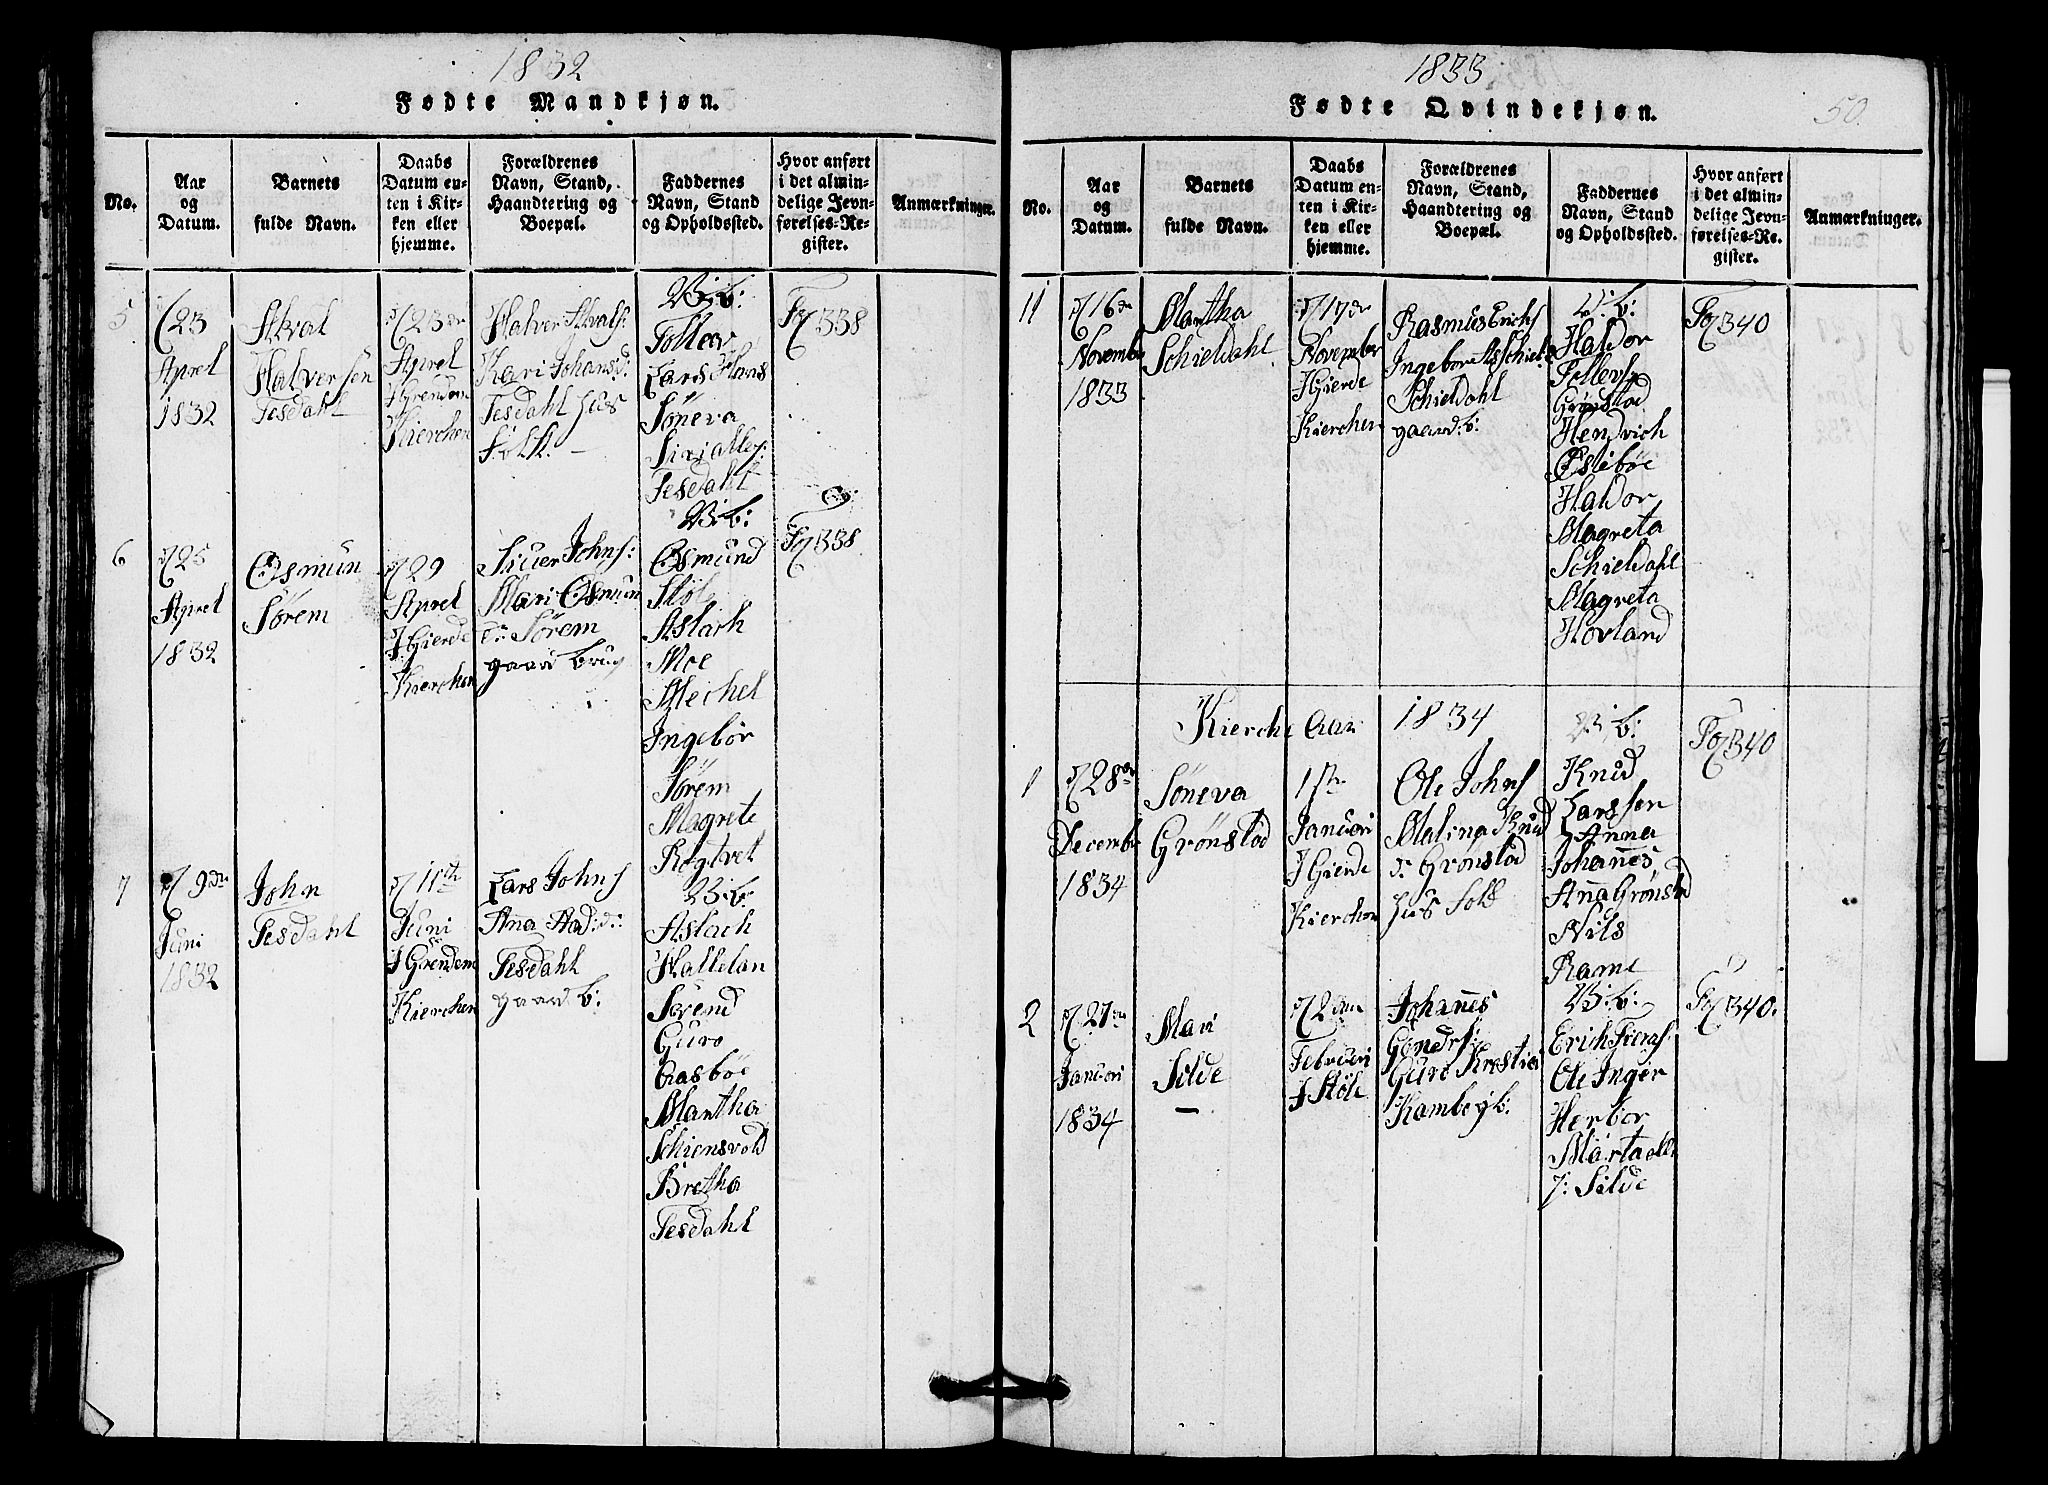 1832
Fødte Mandkjøn.
No.
Aar
og
Datum.
Barnets
fulde Navn.
Daabs
Datum en-
ten i Kir-
ken eller
hjemme.
Forældrenes
Navn, Stand,
Haandtering og
Boepæl.
Faddernes
Navn, Stand
og Opholdssted.
Hvor anført
i det almin-
delige Jevn-
førelses-Re-
gister.
Anmærkninger.
5
23
Aprel
1832
Halversen
Tesdahl
23
Aprel
Kierchen
Kari Johans:d:
Tesdahl Hus
B:b:
Tollev
Lars Hans
Söneva
Siri
Tesdahl
338
6
25
Aprel
1832
Osmun
Sörem
29
Aprel
J Gierde
Kierchen
Siver Johns:
Mari Osmun
d: Sörem
gaard brug
B:b:
Osmund
Stöle
Aslach
Moe
Mechel
Ingebör
Sörem
Magrete
338
7
9de
Juni
1832
John
Tesdahl
11te
Juni
Kierchen
Lars Johns
Ana Aad:d:
Tesdahl
gaard b:
B:b:
Aslach
Hallelan
Svend
Guro
Aasböe
Martha
Schiensvold
Bretha
Tesdahl
1833
Fødte Qvindekjøn.
50.
No.
Aar
og
Datum.
Barnets
fulde Navn.
Daabs
Datum en-
ten i Kir-
ken eller
hjemme.
Forældrenes
Navn, Stand,
Haandtering og
Boepæl.
Faddernes
Navn, Stand
og Opholdssted.
Hvor anført
i det almin-
delige Jevn-
førelses-Re-
gister.
Anmærkninger.
11
16de
November
1833
Martha
Schieldahl
17de
November
J Gierde
Kierchen
Rasmus Erichs
Schieldahl
gaard:b:
B:b:
Haldor
Tollevs
Grönstad
Hendrich
Östeböe
Haldor
Magreta
Schieldahl
Magreta
Hovland
340
Kierche Aar 1834
1
28de
December
1834
Söneva
Grönstöd
1ste
Januari
J Gierde
Kierchen
Ole Johns
Malina Knud
d: Grönstöd
Hus
B:b:
Knud
Larssen
Anna
Johannes
Anna Grönstd
Nils
Rame
340
2
27de
Januari
1834
Mari
Silde
2den
Februari
J Stöle
Johannes
Guro
B:b:
Erich
Ole Inger
Herbor
Marta
Silde
340.